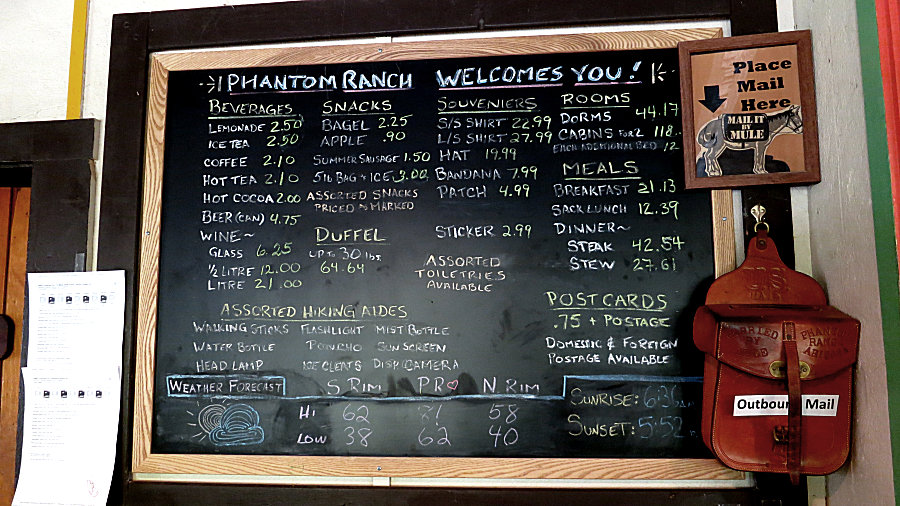 PHANTOM RANCH WELCOMES YOU!
BEVERAGES
LEMONADE 2.50
ICE TEA 2.50
COFFEE 2.10
HOT TEA 2.10
HOT COCOA 2.00
BEER (CAN) 4.75
WINE~
GLASS 6.25
½ LITRE 12.00
LITRE 21.00
SNACKS
BAGEL 2.25
APPLE .90
SUMMER SAUSAGE 1.50
5 lb BAG ICE 3.00
ASSORTED SNACKS
PRICED AS MARKED
DUFFEL
UP TO 30 lbs.
64.64
SOUVENIERS
S/S SHIRT 22.99
L/S SHIRT 27.99
HAT 19.99
BANDANA 7.99
PATCH 4.99
STICKER 2.99
ASSORTED
TOILETRIES
AVAILABLE
ROOMS
DORMS 44.17
CABINS FOR 2 118.
EACH ADDITIONAL BED 12
MEALS
BREAKFAST 21.13
SACK LUNCH 12.39
DINNER~
STEAK 42.54
STEW 27.61
ASSORTED HIKING AIDES
WALKING STICKS FLASHLIGHT MIST BOTTLE
WATER BOTTLE PONCHO SUNSCREEN
HEAD LAMP ICE CLEATS DISP. CAMERA
POSTCARDS
.75 + POSTAGE
DOMESTIC & FOREIGN
POSTAGE AVAILABLE
WEATHER FORECAST S. RIM P.R. N. RIM
HI 62 71 58
LOW 38 62 40
SUNRISE: 6:36
SUNSET: 5:52
Place
Mail
Here
MAIL IT
BY
MULE
U.S.
MAIL
CARRIED
BY
PHANTOM
RANCH
ARIZONA
Outbound Mail